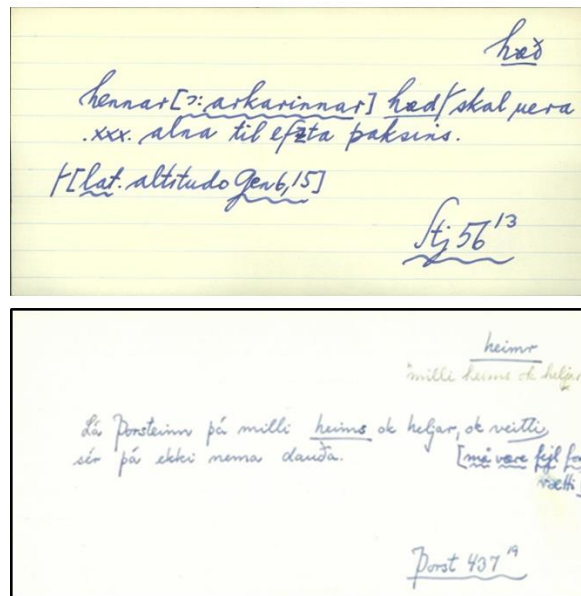 hæð
hennar [ɔ: arkarinnar] hæd/ skal uera
.xxx. alna til efzta þaksins.
/-[lat. altitudo Gen 6,15]
Stj 56¹³
heimr
milli heims ok heljar
Lá Þorsteinn þá milli heims ok heljar, ok veitti
sér þá ekki nema dauða. [må være fejl for
vætti]
Þorst 437¹⁹